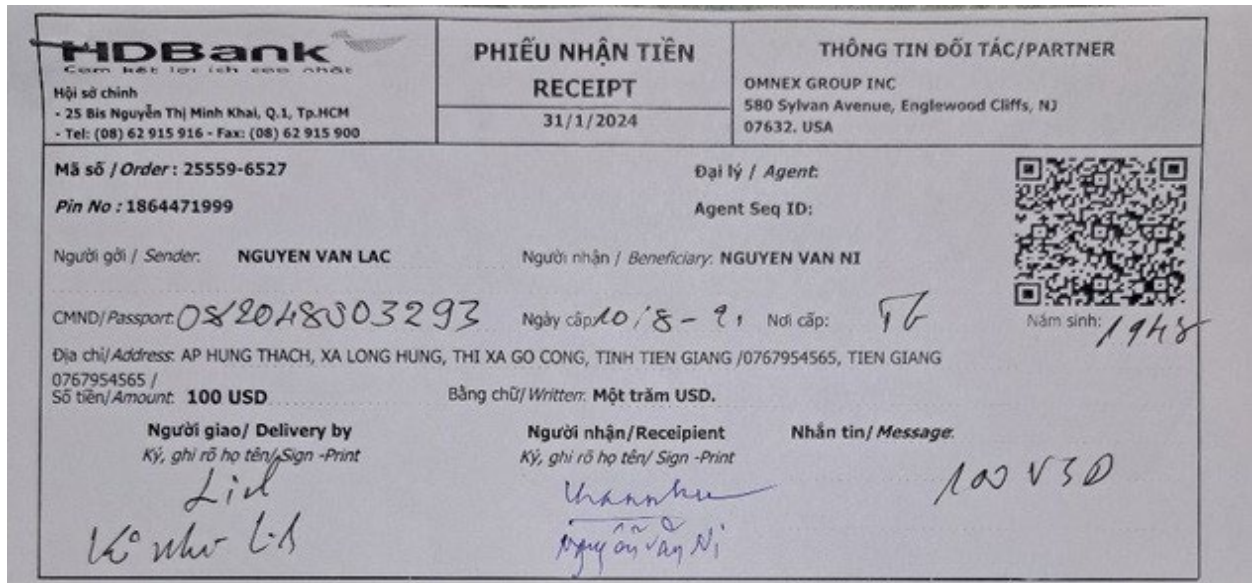 HDBank
Cam kết lợi ích cao nhất
Hội sở chính
- 25 Bis Nguyễn Thị Minh Khai, Q.1, Tp.HCM
- Tel: (08) 62 915 916 - Fax: (08) 62 915 900
PHIẾU NHẬN TIỀN
RECEIPT
31/1/2024
THÔNG TIN ĐỐI TÁC/PARTNER
OMNEX GROUP INC
580 Sylvan Avenue, Englewood Cliffs, NJ
07632. USA
Mã số / Order : 25559-6527 Đại lý / Agent:
Pin No : 1864471999 Agent Seq ID:
Người gởi / Sender: NGUYEN VAN LAC Người nhận / Beneficiary: NGUYEN VAN NI
CMND/Passport: 082048003293 Ngày cấp: 10/8-21 Nơi cấp: TG Năm sinh: 1948
Địa chỉ/Address: AP HUNG THACH, XA LONG HUNG, THI XA GO CONG, TINH TIEN GIANG /0767954565, TIEN GIANG
0767954565 /
Số tiền/Amount: 100 USD Bằng chữ/Written: Một trăm USD.
Người giao/ Delivery by Người nhận/Receipient Nhắn tin/Message:
Ký, ghi rõ họ tên/ Sign -Print Ký, ghi rõ họ tên/ Sign -Print
100 USD
Nguyễn Văn Ni